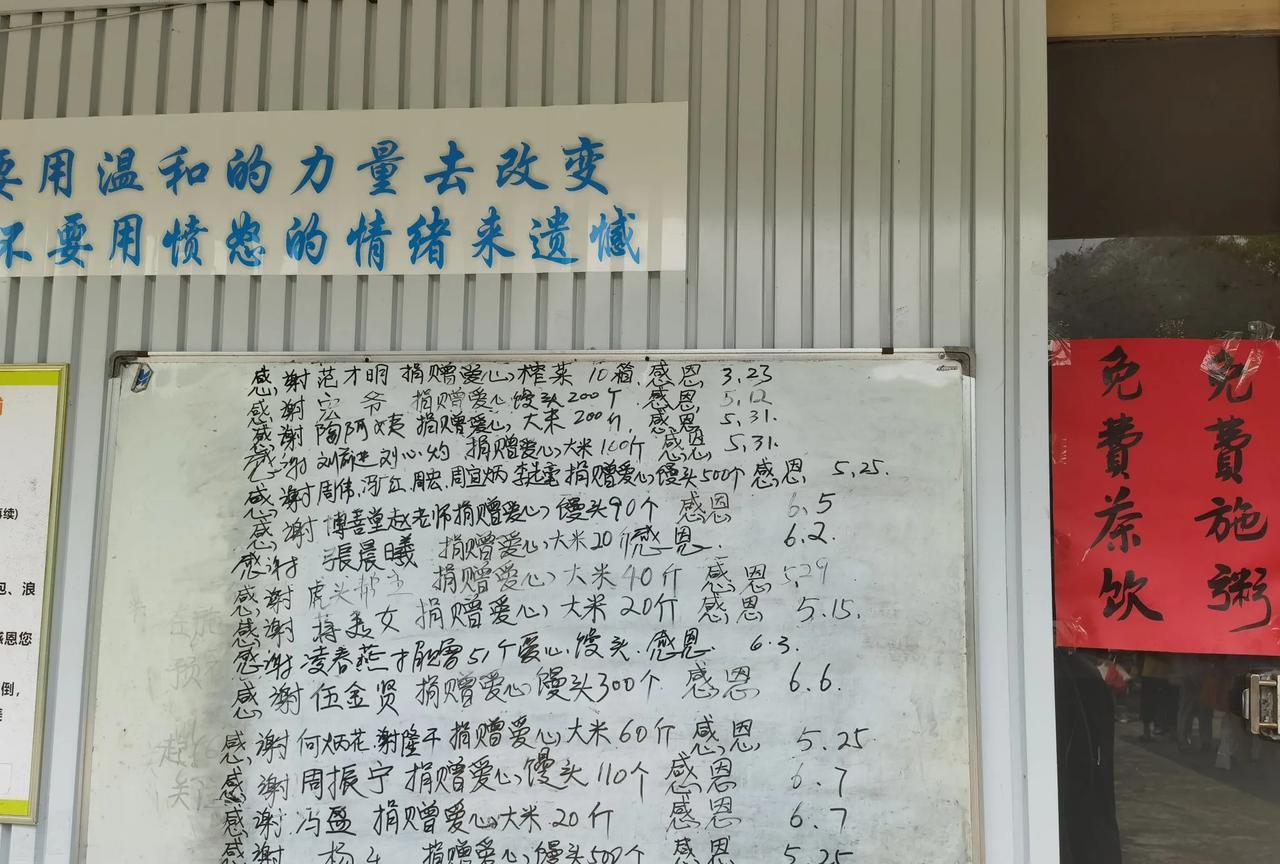 要用温和的力量去改变
不要用愤怒的情绪来遗憾
感谢范才明 捐赠爱心榨菜10箱.感恩 3.23
感谢宏爷 捐赠爱心馒头200个 感恩 5.12
感谢陶阿姨 捐赠爱心,大米200斤,感恩 5.31.
感谢刘 刘心灼 捐赠爱心大米100斤 感恩 5.31.
感谢周伟.冯广红.周宏.周宜炳.李 捐赠爱心馒头500个感恩 5.25.
感谢博善堂赵老师捐赠爱心馒头90个 感恩 6.5
感谢張晨曦 捐赠爱心大米20斤感恩. 6.2.
感谢虎头帮主 捐赠爱心大米40斤 感恩 5.29
感谢蒋美女 捐赠爱心大米20斤 感恩 5.15.
感谢凌春燕 捐赠51个爱心馒头.感恩. 6.3.
感谢伍金贤 捐赠爱心馒头300个 感恩 6.6.
感谢何炳花.谢隆平 捐赠爱心大米60斤 感恩 5.25.
感谢周振宁 捐赠爱心馒头110个 感恩 6.7
感谢冯盈 捐赠爱心大米20斤 感恩 6.7
感谢杨 捐赠爱心馒头500个 感恩 5.25
免費施粥
免費茶饮
续)
包、浪
感恩您
倒,